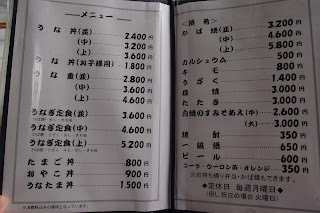 メニュー
うな丼(並) 2.400円
(中) 3.200円
(上) 3.600円
うな丼(お子様用) 1.800
うな重(並) 2.800
(中) 3.600
(上) 4.600
うなぎ定食(並) 3.600円
うなぎ定食(中) 4.600円
うなぎ定食(上) 5.200円
たまご丼 800円
おやこ丼 900円
うなたま丼 1.500円
<酒肴>
かば焼(並) 3.200円
(中) 4.600円
(上) 5.800円
カルシュウム 500円
キモ 800円
うざく 1.400円
段焼
たたき 3.000円
白焼のすみそあえ(中) 2.600円
(大) 3.000円
焼酎 350円
一級酒 650円
ビール 600円
コーラ・ウーロン茶・オレンジ 350円
※お持ち帰り弁当・かば焼もできます。
●定休日 毎週月曜日●
(但し祝日の場合火曜日)